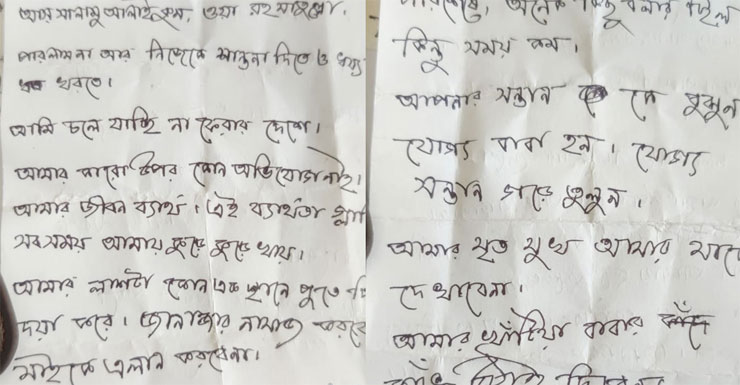 আসসালামু আলাইকুম, ওয়া রহমাতুল্লাহ।
পারলাম না আর নিজেকে সান্তনা দিতে ও ধৈর্য্য
ধরতে।
আমি চলে যাচ্ছি না ফেরার দেশে।
আমার কারো উপর কোন অভিযোগ নাই।
আমার জীবন ব্যার্থ। এই ব্যার্থতা
সব সময় আমায় কুড়ে কুড়ে খায়।
আমার লাশটা কোন এক স্থানে পুতে
দয়া করে। জানাজার নামাজ করবে
মাইকে এলান করবেনা।
অনেক কিছু বলার ছিল
কিন্তু সময় কম।
আপনার সন্তান কে বুঝুন
যোগ্য বাবা হন। যোগ্য
সন্তান গড়ে তুলুন।
আমার মৃত মুখ আমার মাকে
দেখাবেনা।
আমার খাটিয়া বাবার কাঁধে